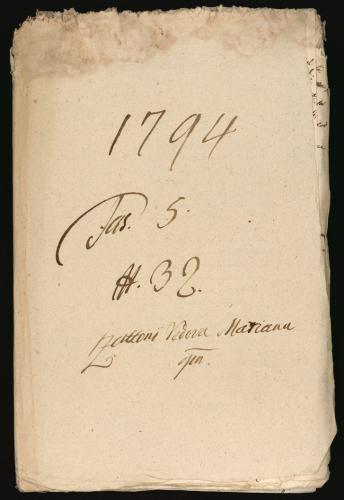 1794
Fas. 5.
N. 32.
Zattoni Vedova Mariana